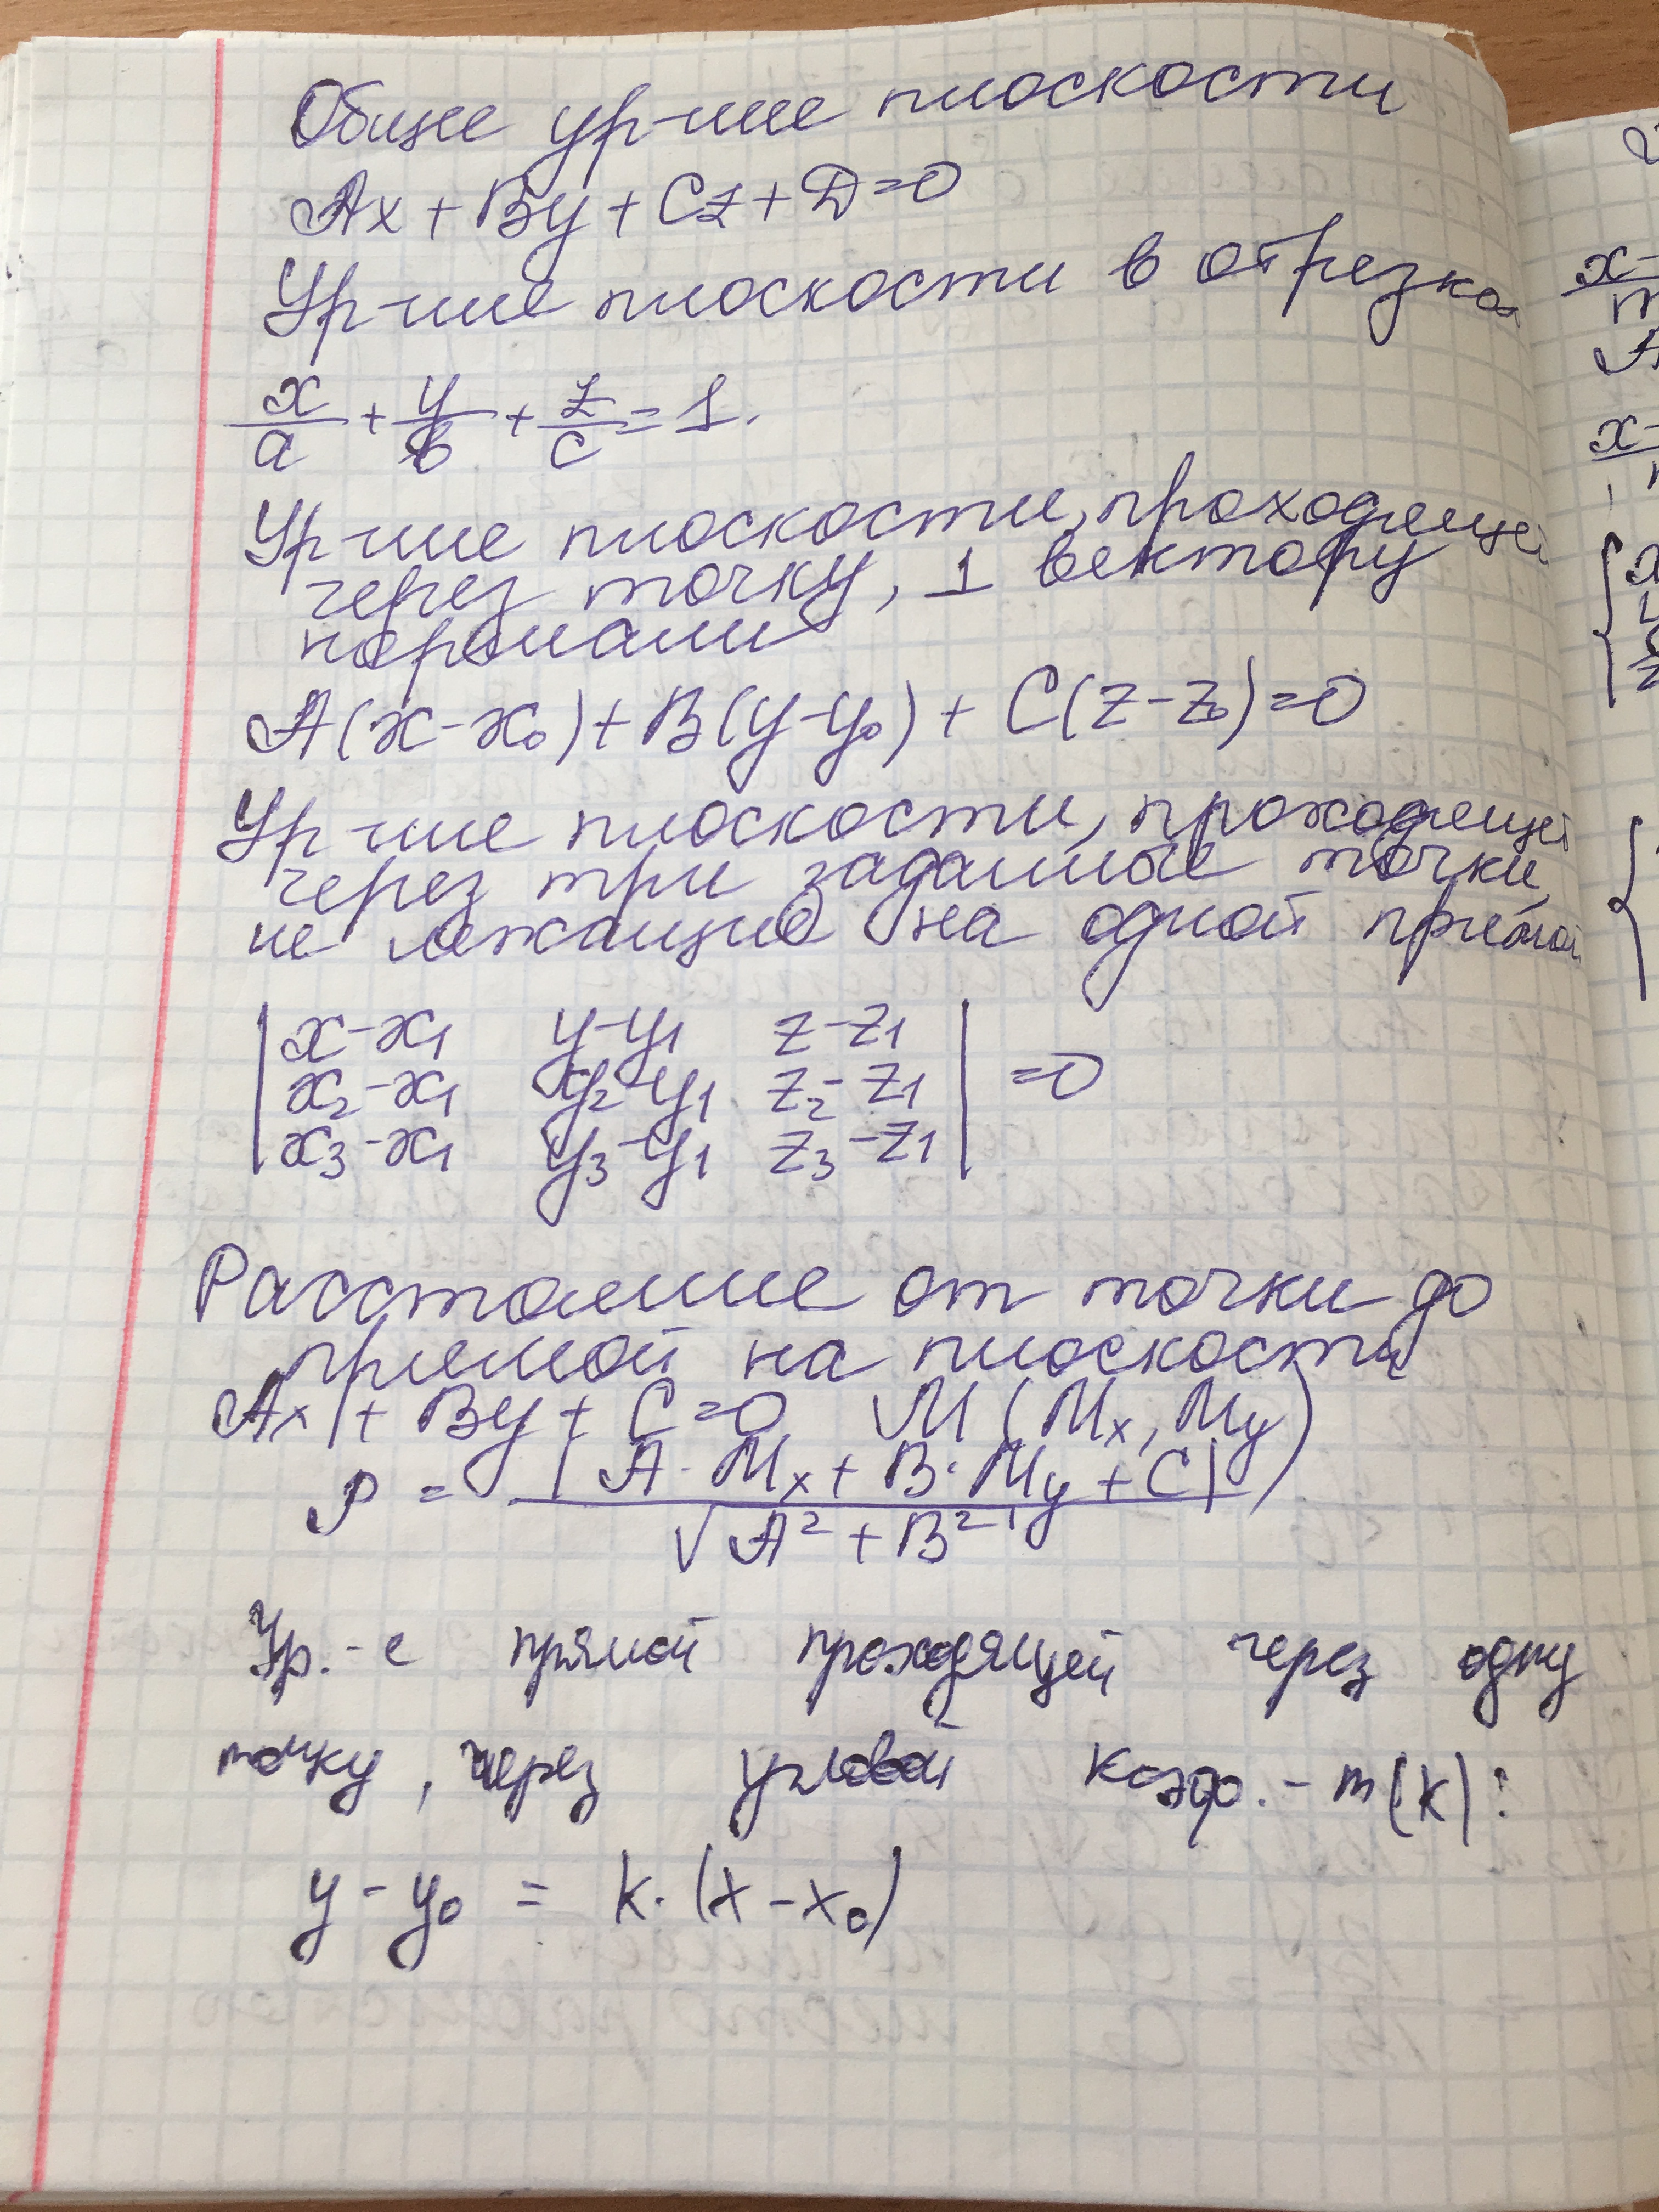 Общее ур-ние плоскости
Ax + By + Cz + D = 0
Ур-ние плоскости в отрезка
x/a + y/b + z/c = 1.
Ур-ние плоскости, проходящей
через точку, ⊥ вектору
нормали
A(x-x₀) + B(y-y₀) + C(z-z₀)=0
Ур-ние плоскости, проходящей
через три заданные точки,
не лежащие на одной прямой
| x-x₁ y-y₁ z-z₁ |
| x₂-x₁ y₂-y₁ z₂-z₁ | =0
| x₃-x₁ y₃-y₁ z₃-z₁ |
Расстояние от точки до
прямой на плоскости
Ax + By + C = 0 M (Mx, My)
ρ = |A·Mx + B·My + C| / √(A² + B²)
Ур.-е прямой проходящей через одну
точку, через угловой коэф.-т(k):
y - y₀ = k·(x - x₀)